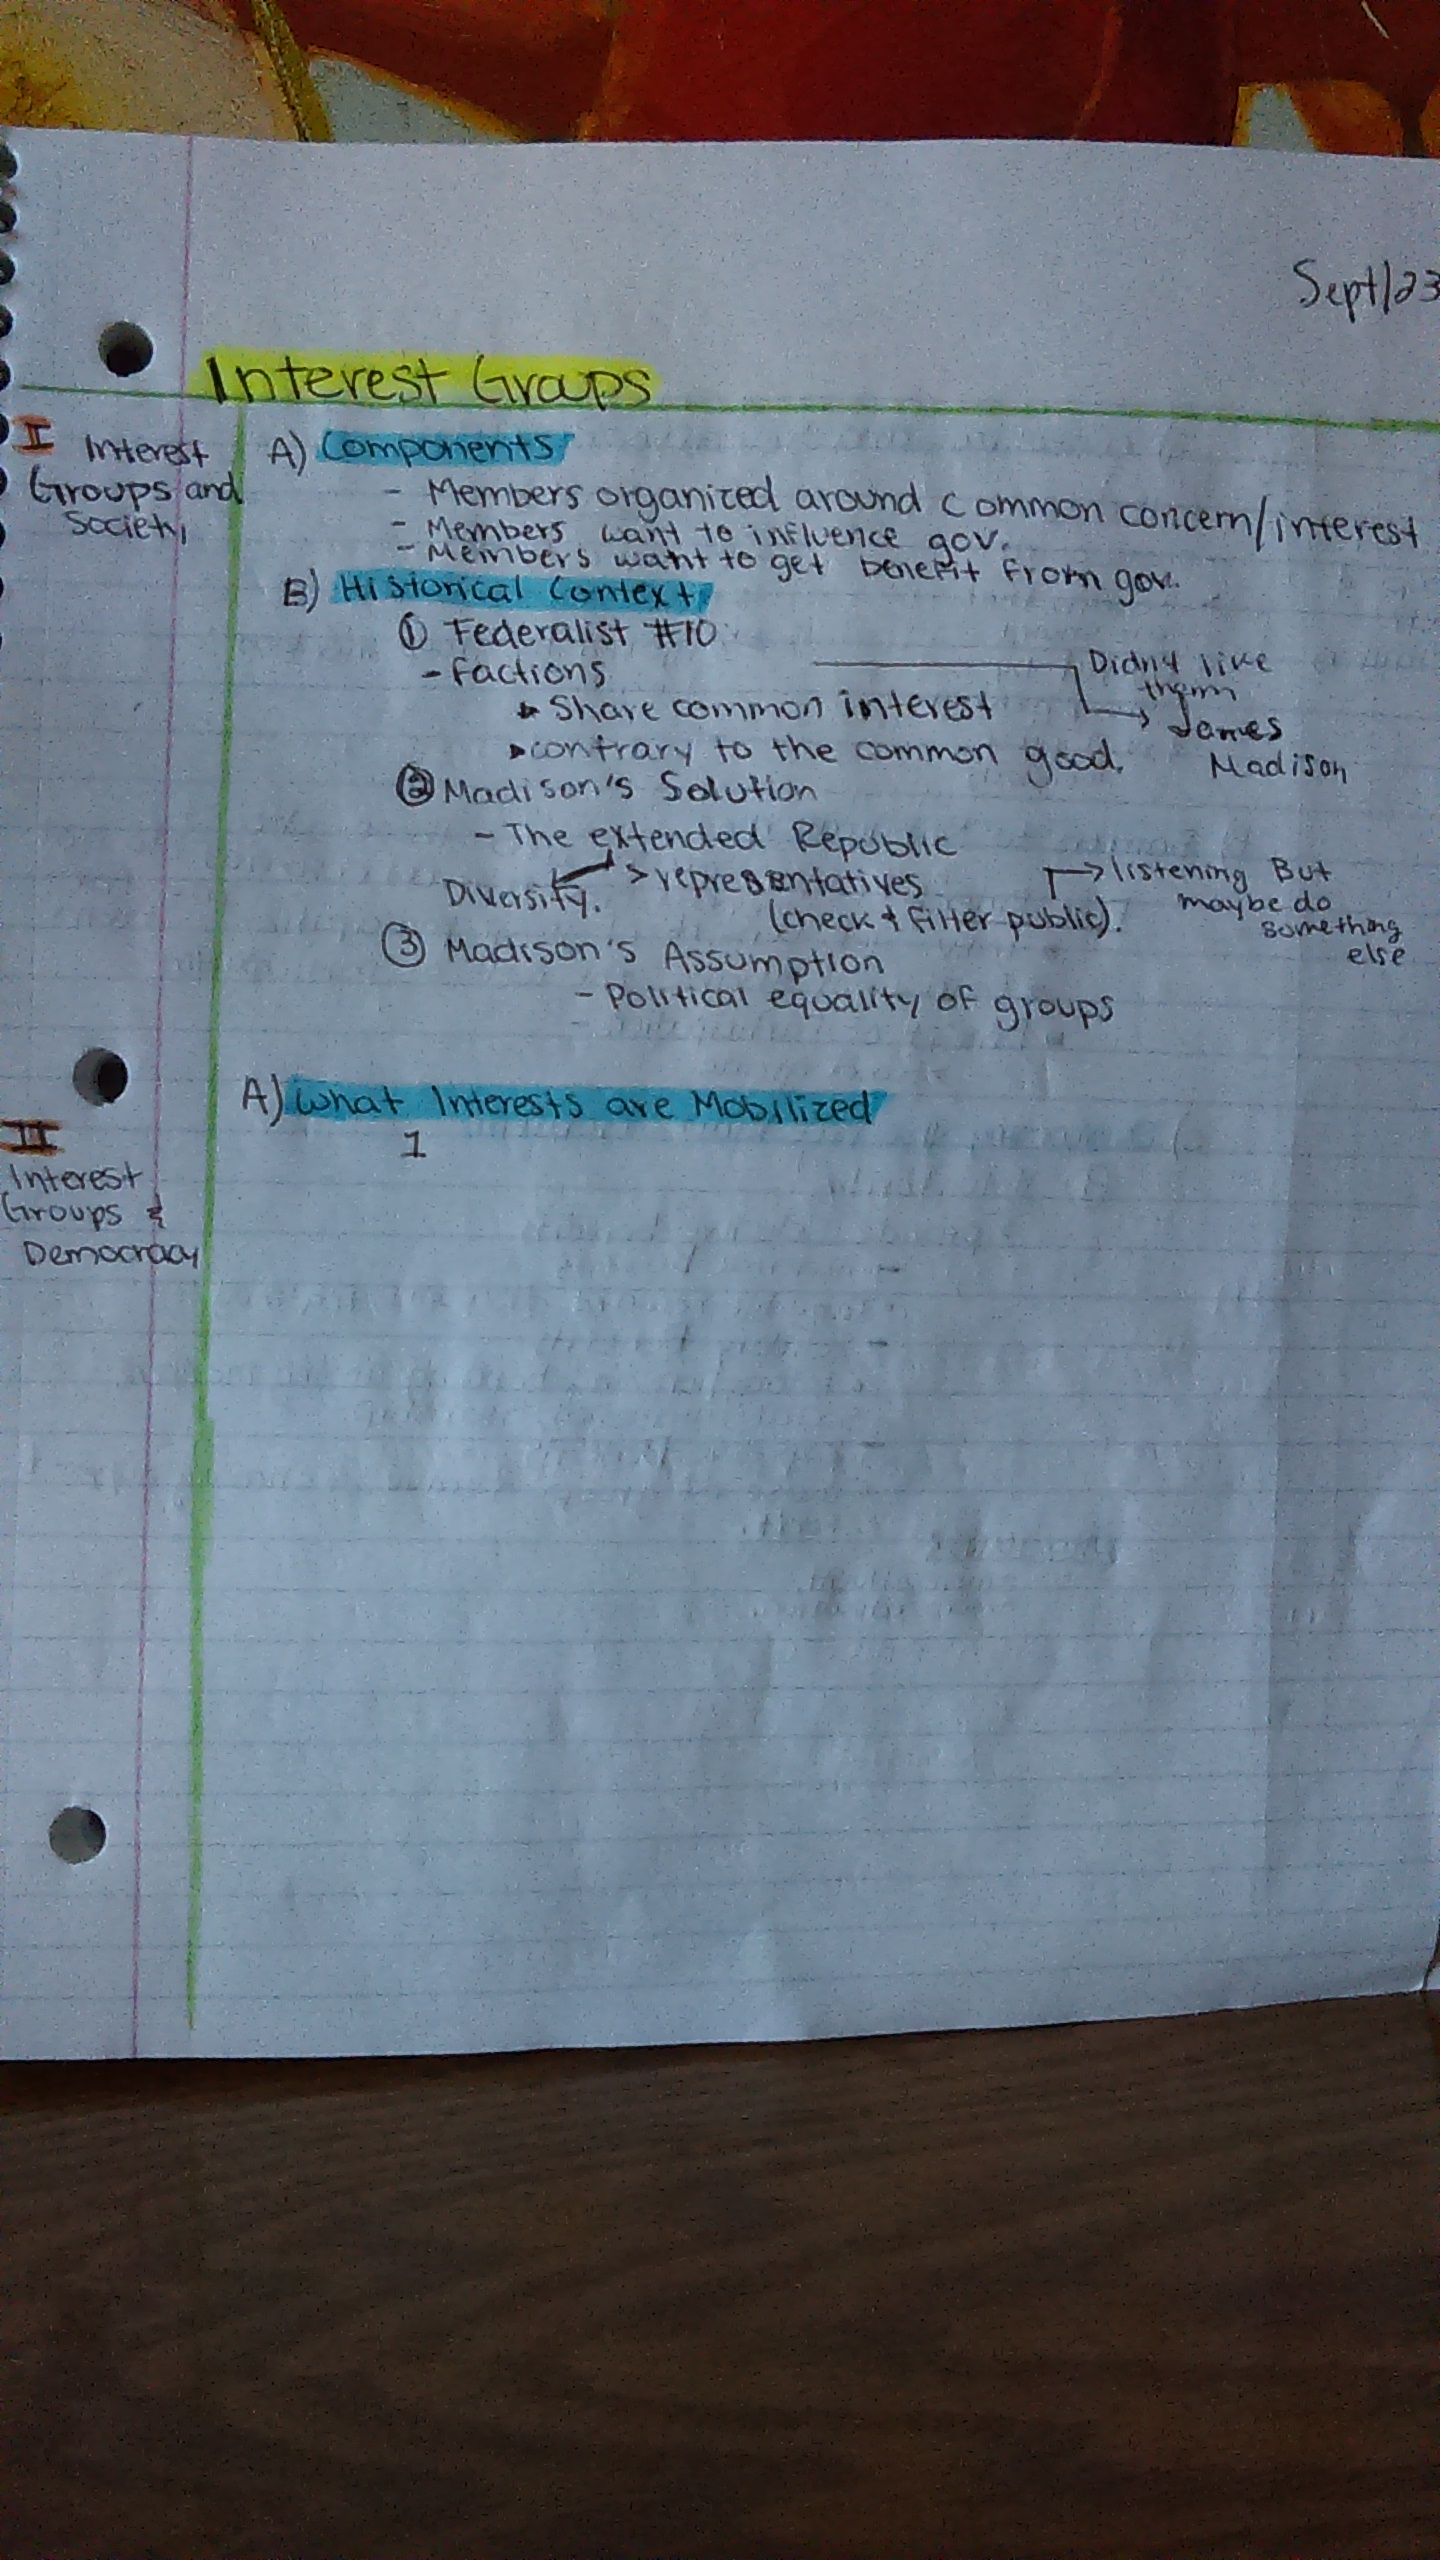 Sept/23
Interest Groups
I Interest
Groups and
Society
A) Components
- Members organized around common concern/interest
- Members want to influence gov.
- Members want to get benefit from gov.
B) Historical Context
① Federalist #10
- factions
Didn't like
them
James
Madison
▸ Share common interest
▸ contrary to the common good.
② Madison's Solution
- The extended Republic
Diversity. > representatives
(check & filter public).
→ listening But
maybe do
something
else
③ Madison's Assumption
- Political equality of groups
II
Interest
Groups &
Democracy
A) What Interests are Mobilized
1